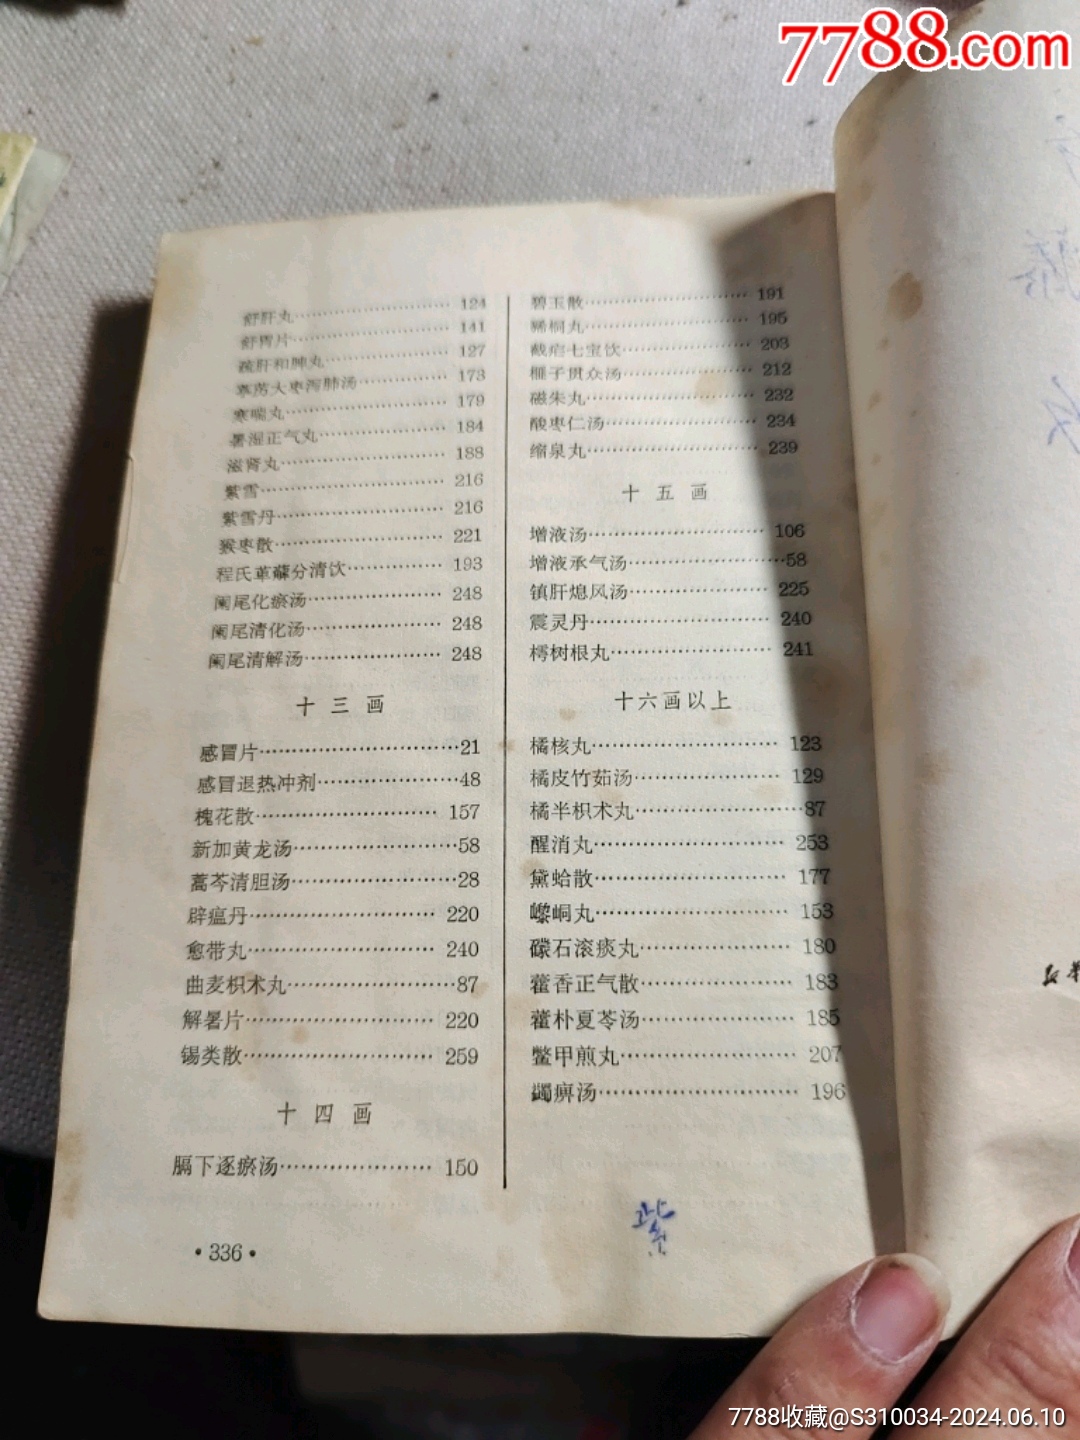 7788.com
舒肝丸 124
舒胃片 141
疏肝和脾丸 127
葶苈大枣泻肺汤 173
寒喘丸 179
暑湿正气丸 184
滋肾丸 188
紫雪 216
紫雪丹 216
猴枣散 221
程氏萆薢分清饮 193
阑尾化瘀汤 248
阑尾清化汤 248
阑尾清解汤 248
十三画
感冒片 21
感冒退热冲剂 48
槐花散 157
新加黄龙汤 58
蒿芩清胆汤 28
辟瘟丹 220
愈带丸 240
曲麦枳术丸 87
解暑片 220
锡类散 259
十四画
膈下逐瘀汤 150
碧玉散 191
豨桐丸 195
截疟七宝饮 203
榧子贯众汤 212
磁朱丸 232
酸枣仁汤 234
缩泉丸 239
十五画
增液汤 106
增液承气汤 58
镇肝熄风汤 225
震灵丹 240
樗树根丸 241
十六画以上
橘核丸 123
橘皮竹茹汤 129
橘半枳术丸 87
醒消丸 253
黛蛤散 177
嚟峒丸 153
礞石滚痰丸 180
藿香正气散 183
藿朴夏苓汤 185
鳖甲煎丸 207
蠲痹汤 196
·336·
7788收藏@S310034-2024.06.10